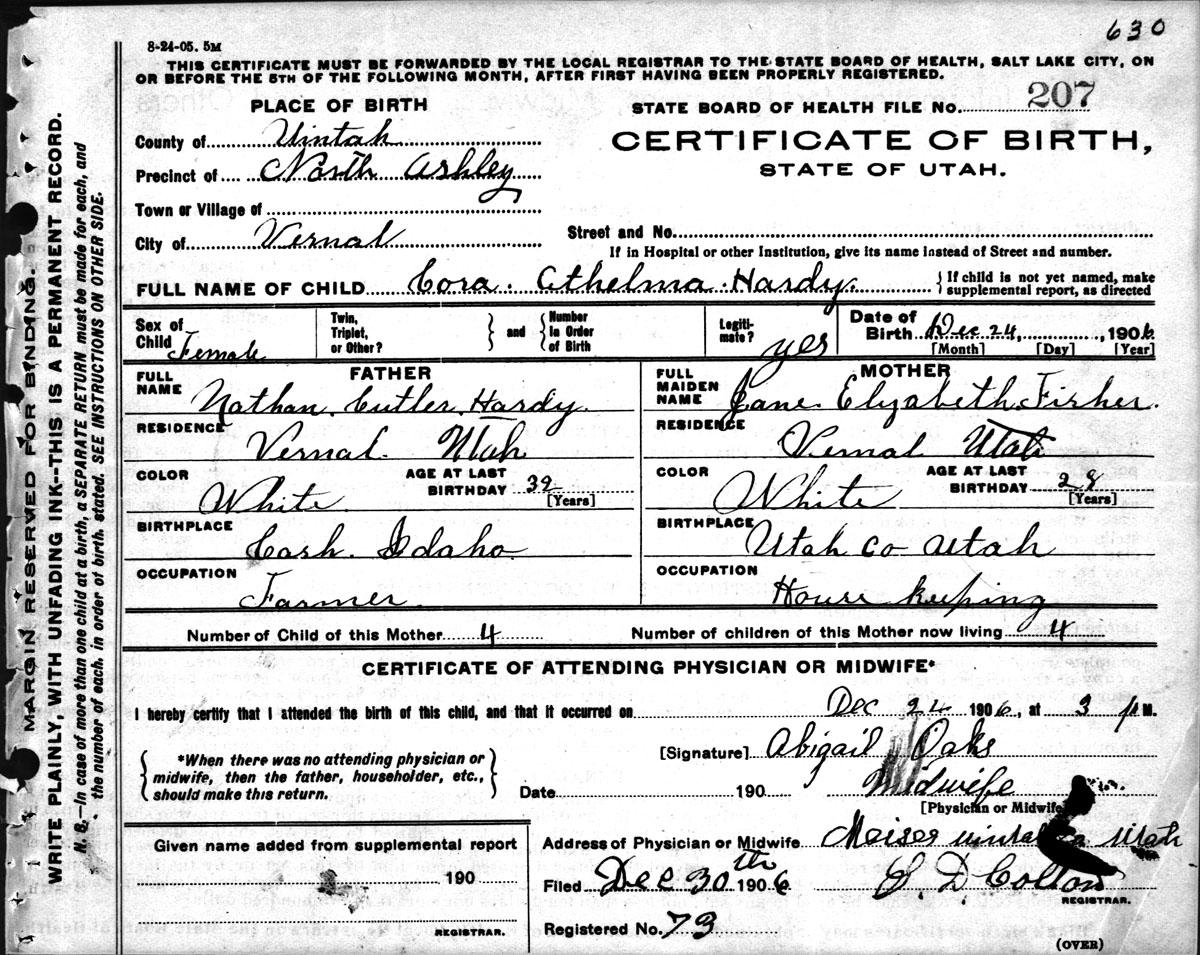 630
8-24-05. 5M
THIS CERTIFICATE MUST BE FORWARDED BY THE LOCAL REGISTRAR TO THE STATE BOARD OF HEALTH, SALT LAKE CITY, ON
OR BEFORE THE 5TH OF THE FOLLOWING MONTH, AFTER FIRST HAVING BEEN PROPERLY REGISTERED.
PLACE OF BIRTH
STATE BOARD OF HEALTH FILE No. 207
County of Uintah
CERTIFICATE OF BIRTH,
Precinct of North Ashley
STATE OF UTAH.
Town or Village of
City of Vernal
Street and No.
If in Hospital or other Institution, give its name instead of Street and number.
FULL NAME OF CHILD Cora Athelma Hardy. { If child is not yet named, make supplemental report, as directed
Sex of Child Female
Twin, Triplet, or Other? } and { Number in Order of Birth
Legiti- mate? yes
Date of Birth Dec 24, 1906
[Month] [Day] [Year]
FATHER
FULL NAME Nathan Cutler Hardy.
RESIDENCE Vernal Utah
COLOR White
AGE AT LAST BIRTHDAY 39 [Years]
BIRTHPLACE Cash Idaho
OCCUPATION Farmer
MOTHER
FULL MAIDEN NAME Jane Elyzabeth Fisher.
RESIDENCE Vernal Utah
COLOR White
AGE AT LAST BIRTHDAY 28 [Years]
BIRTHPLACE Utah co Utah
OCCUPATION House keeping
Number of Child of this Mother 4
Number of children of this Mother now living 4
CERTIFICATE OF ATTENDING PHYSICIAN OR MIDWIFE*
I hereby certify that I attended the birth of this child, and that it occurred on Dec 24 1906, at 3 p M.
{ *When there was no attending physician or midwife, then the father, householder, etc., should make this return. }
[Signature] Abigail Oaks
Date 190 Midwife
[Physician or Midwife]
Given name added from supplemental report
190
REGISTRAR.
Address of Physician or Midwife Utah
Filed Dec 30th 1906 S. D Colton
REGISTRAR.
Registered No. 73
(OVER)
MARGIN RESERVED FOR BINDING.
WRITE PLAINLY, WITH UNFADING INK--THIS IS A PERMANENT RECORD.
N. B.—In case of more than one child at a birth, a SEPARATE RETURN must be made for each, and
the number of each, in order of birth, stated. SEE INSTRUCTIONS ON OTHER SIDE.